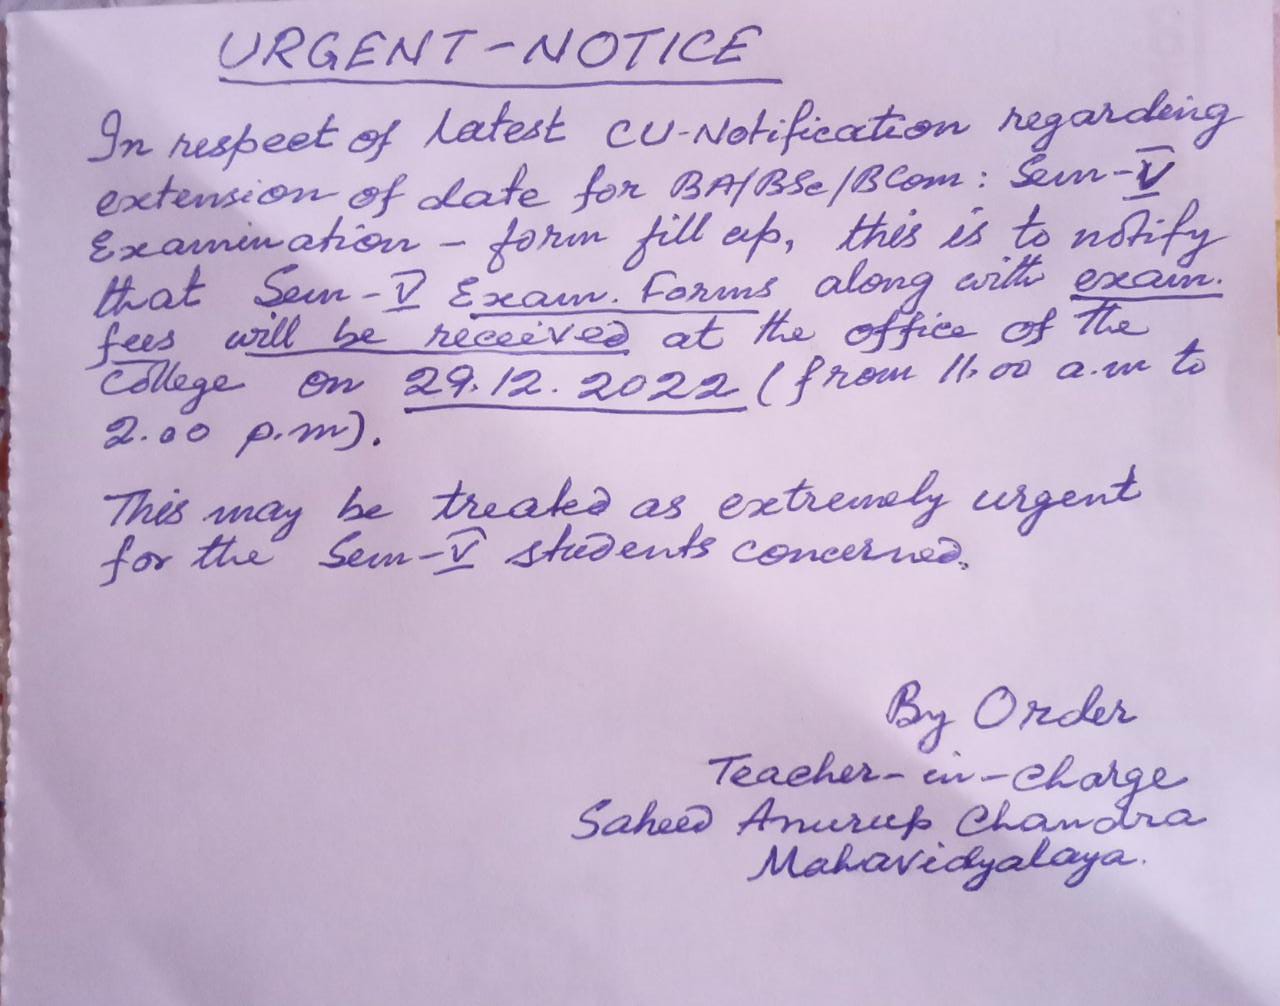 URGENT-NOTICE
In respect of latest CU-Notification regarding
extension of date for BA/BSc/BCom: Sem-V
Examination - form fill up, this is to notify
that Sem-V Exam. Forms along with exam.
fees will be received at the office of the
College on 29.12.2022 (from 11.00 a.m to
2.00 p.m).
This may be treated as extremely urgent
for the Sem-V students concerned.
By Order
Teacher-in-Charge
Saheed Anurup Chandra
Mahavidyalaya.